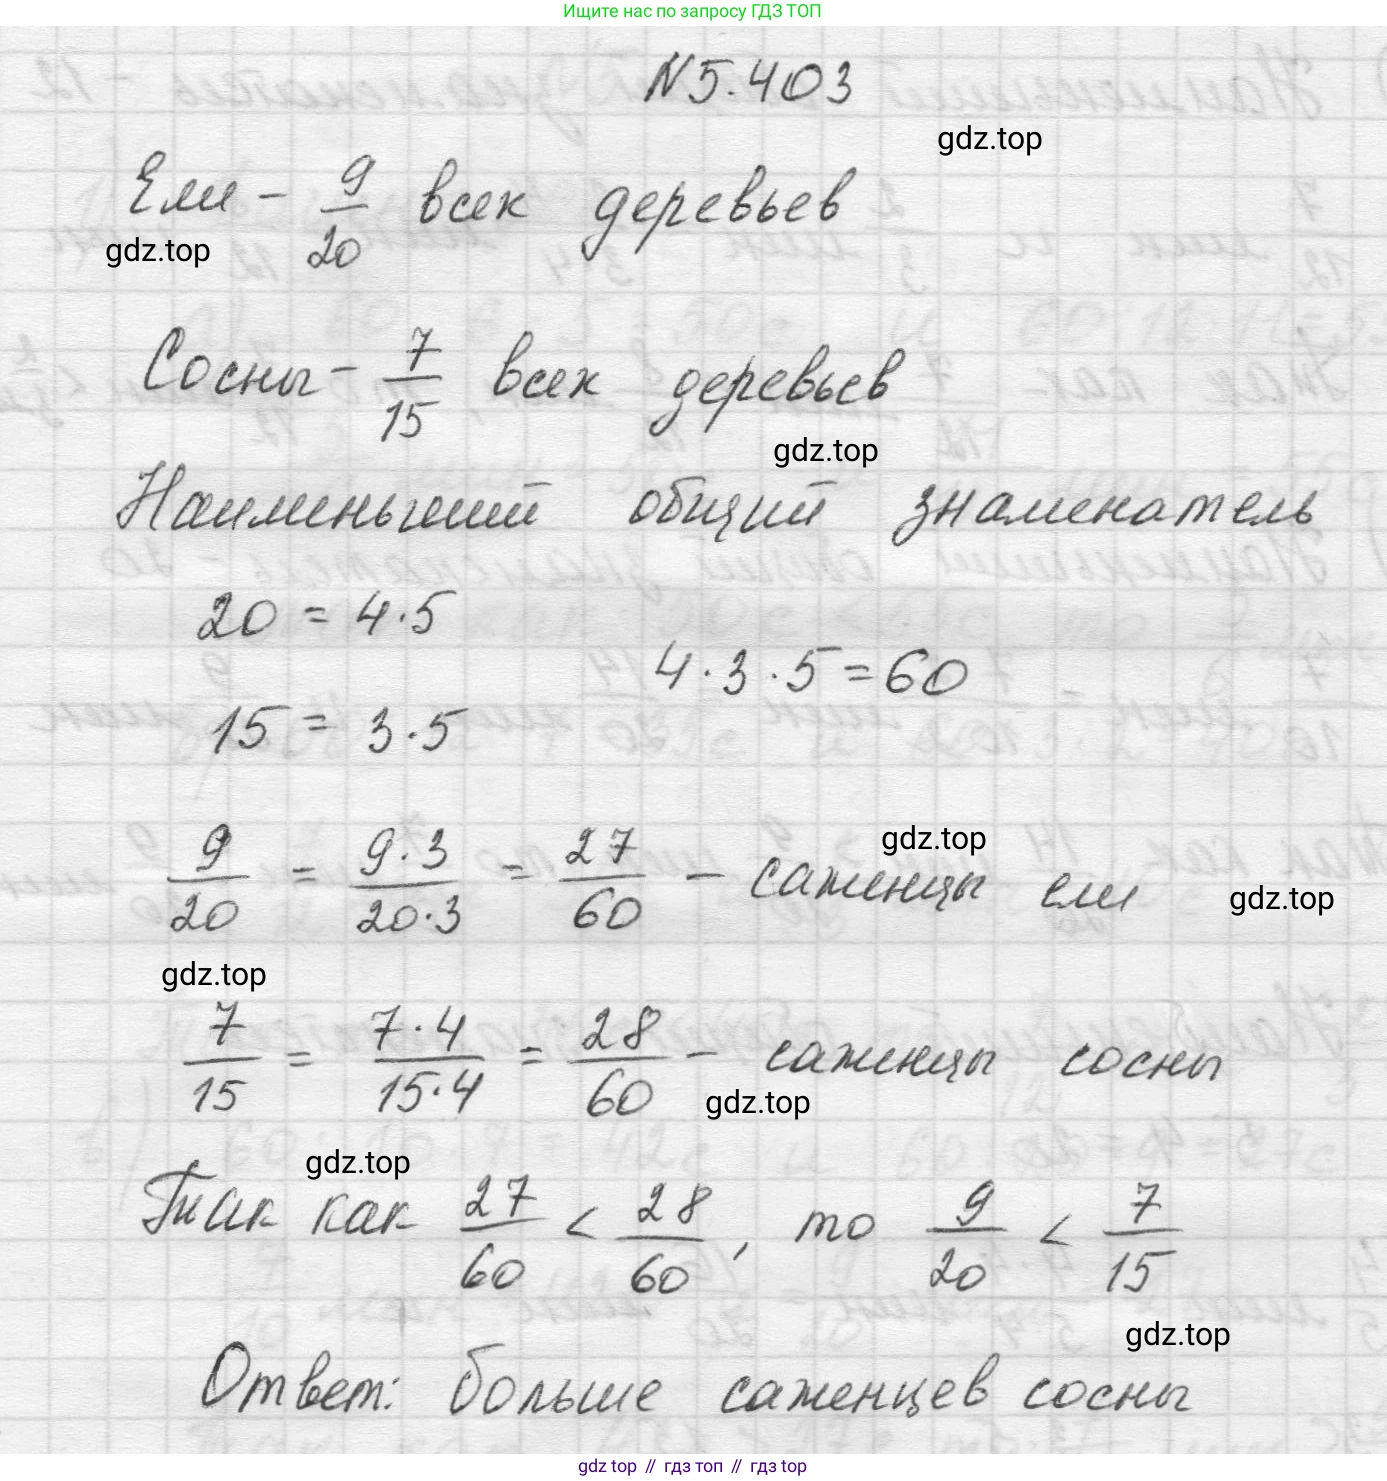 Ищите нас по запросу ГДЗ ТОП
N5.403
gdz.top
Ели - 9/20 всех деревьев
gdz.top
Сосны - 7/15 всех деревьев
gdz.top
Наименьший общий знаменатель
20 = 4·5
4·3·5=60
15 = 3·5
gdz.top
9/20 = 9·3/20·3 = 27/60 - саженцы ели
gdz.top
gdz.top
7/15 = 7·4/15·4 = 28/60 - саженцы сосны
gdz.top
gdz.top
Так как 27/60 < 28/60, то 9/20 < 7/15
gdz.top
Ответ: больше саженцев сосны
gdz top // гдз топ // гдз top